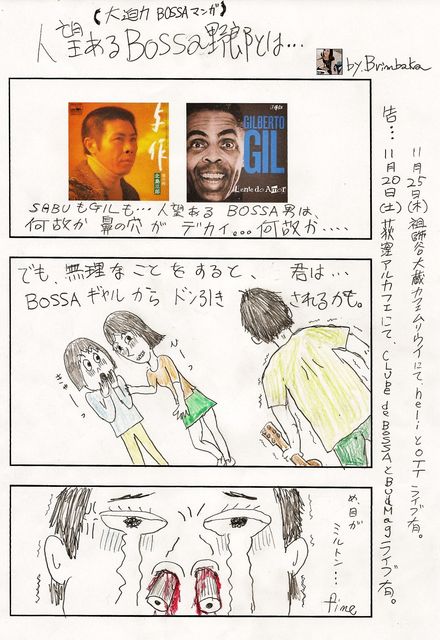 (大迫力 BOSSAマンガ)
人望あるBossa野郎とは…
by.Brimbaka
与作
北島三郎
GILBERTO
GIL
Lente do Amor
SABUもGILも…人望ある BOSSA男は、
何故か 鼻の穴が デカイ。。。何故か....
でも、無理なことをすると、
BOSSAギャルから ドン引き
君は…
されるかも。
め、目が
ミルトン…
fine
告…
11月25日(木)祖師谷大蔵カフェムリウイにて、heliとOTTライブ有。
11月20日(土)荻窪アルカフェにて、CLUBE de BOSSAとBudMagライブ有。